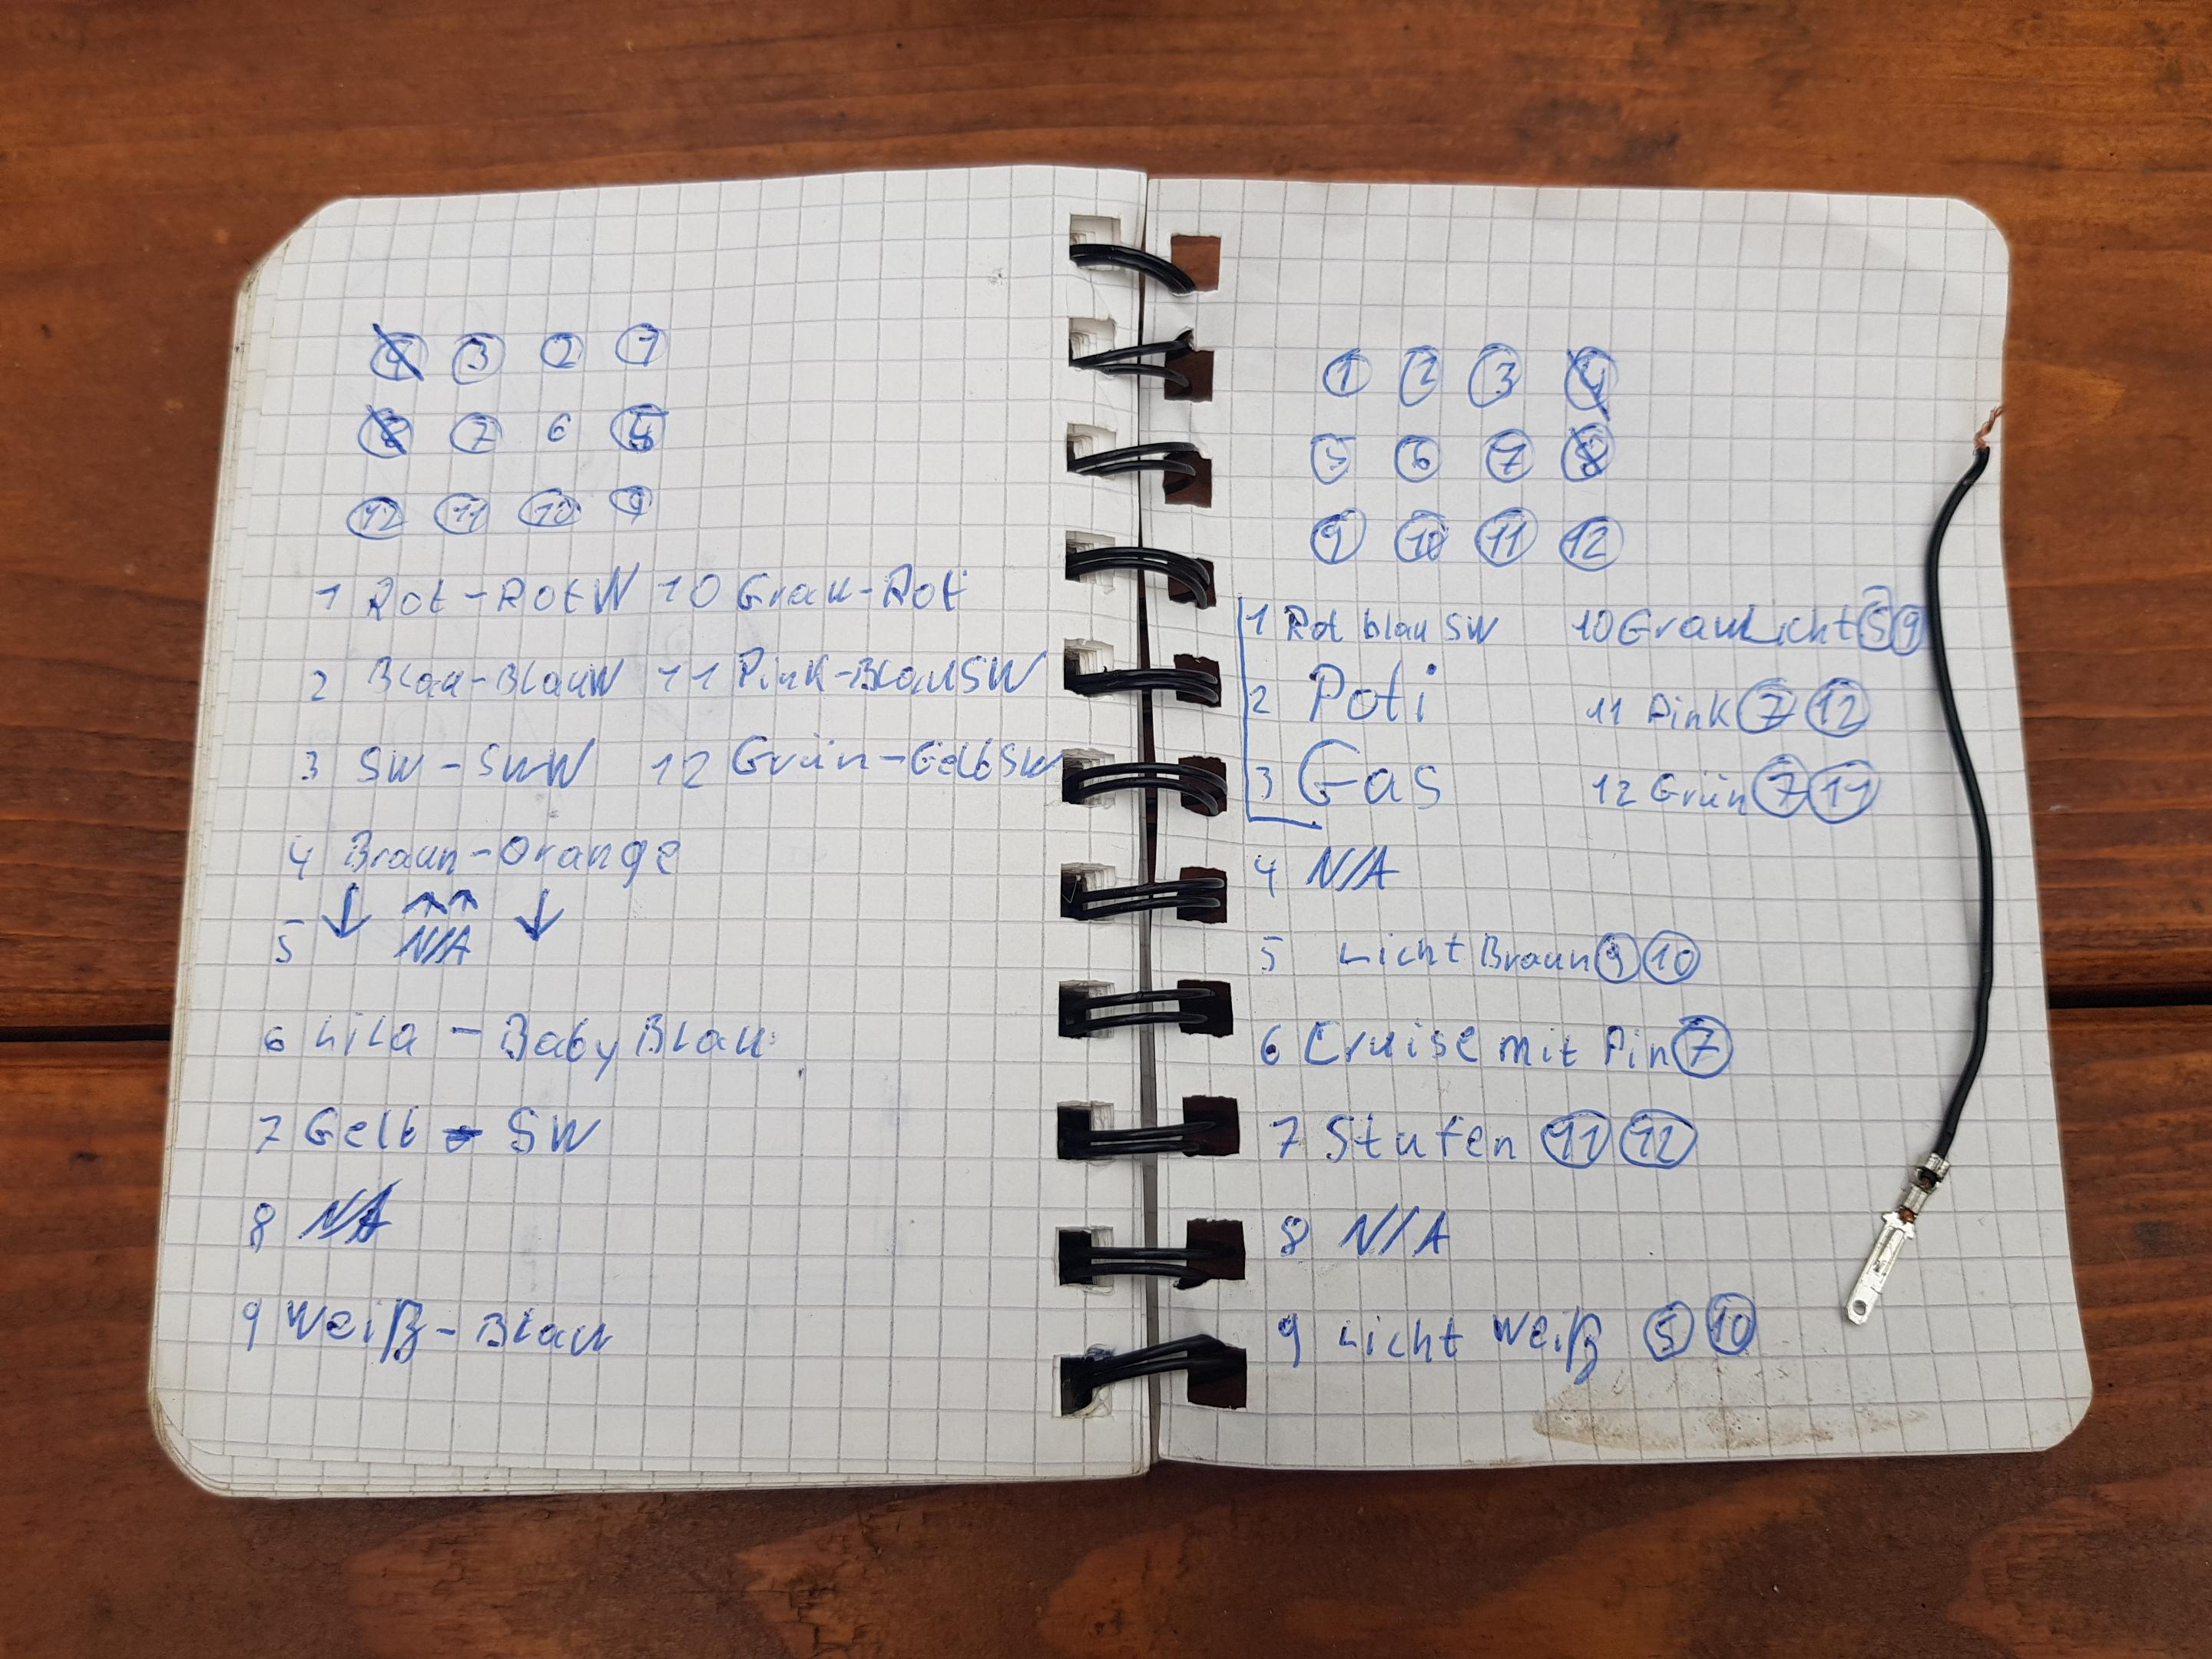 4 3 2 1
8 7 6 5
12 11 10 9
1 Rot-RotW 10 Grau-Rot
2 Blau-BlauW 11 Pink-BlauSW
3 SW-SWW 12 Grün-GelbSW
4 Braun-Orange
5 N/A
6 Lila-BabyBlau
7 Gelb-SW
8 N/A
9 Weiß-Blau
1 2 3 4
5 6 7 8
9 10 11 12
1 Rot blau SW 10 Grau Licht 5 9
2 Poti 11 Pink 7 12
3 Gas 12 Grün 7 11
4 N/A
5 Licht Braun 9 10
6 Cruise mit Pin 7
7 Stufen 11 12
8 N/A
9 Licht Weiß 5 10